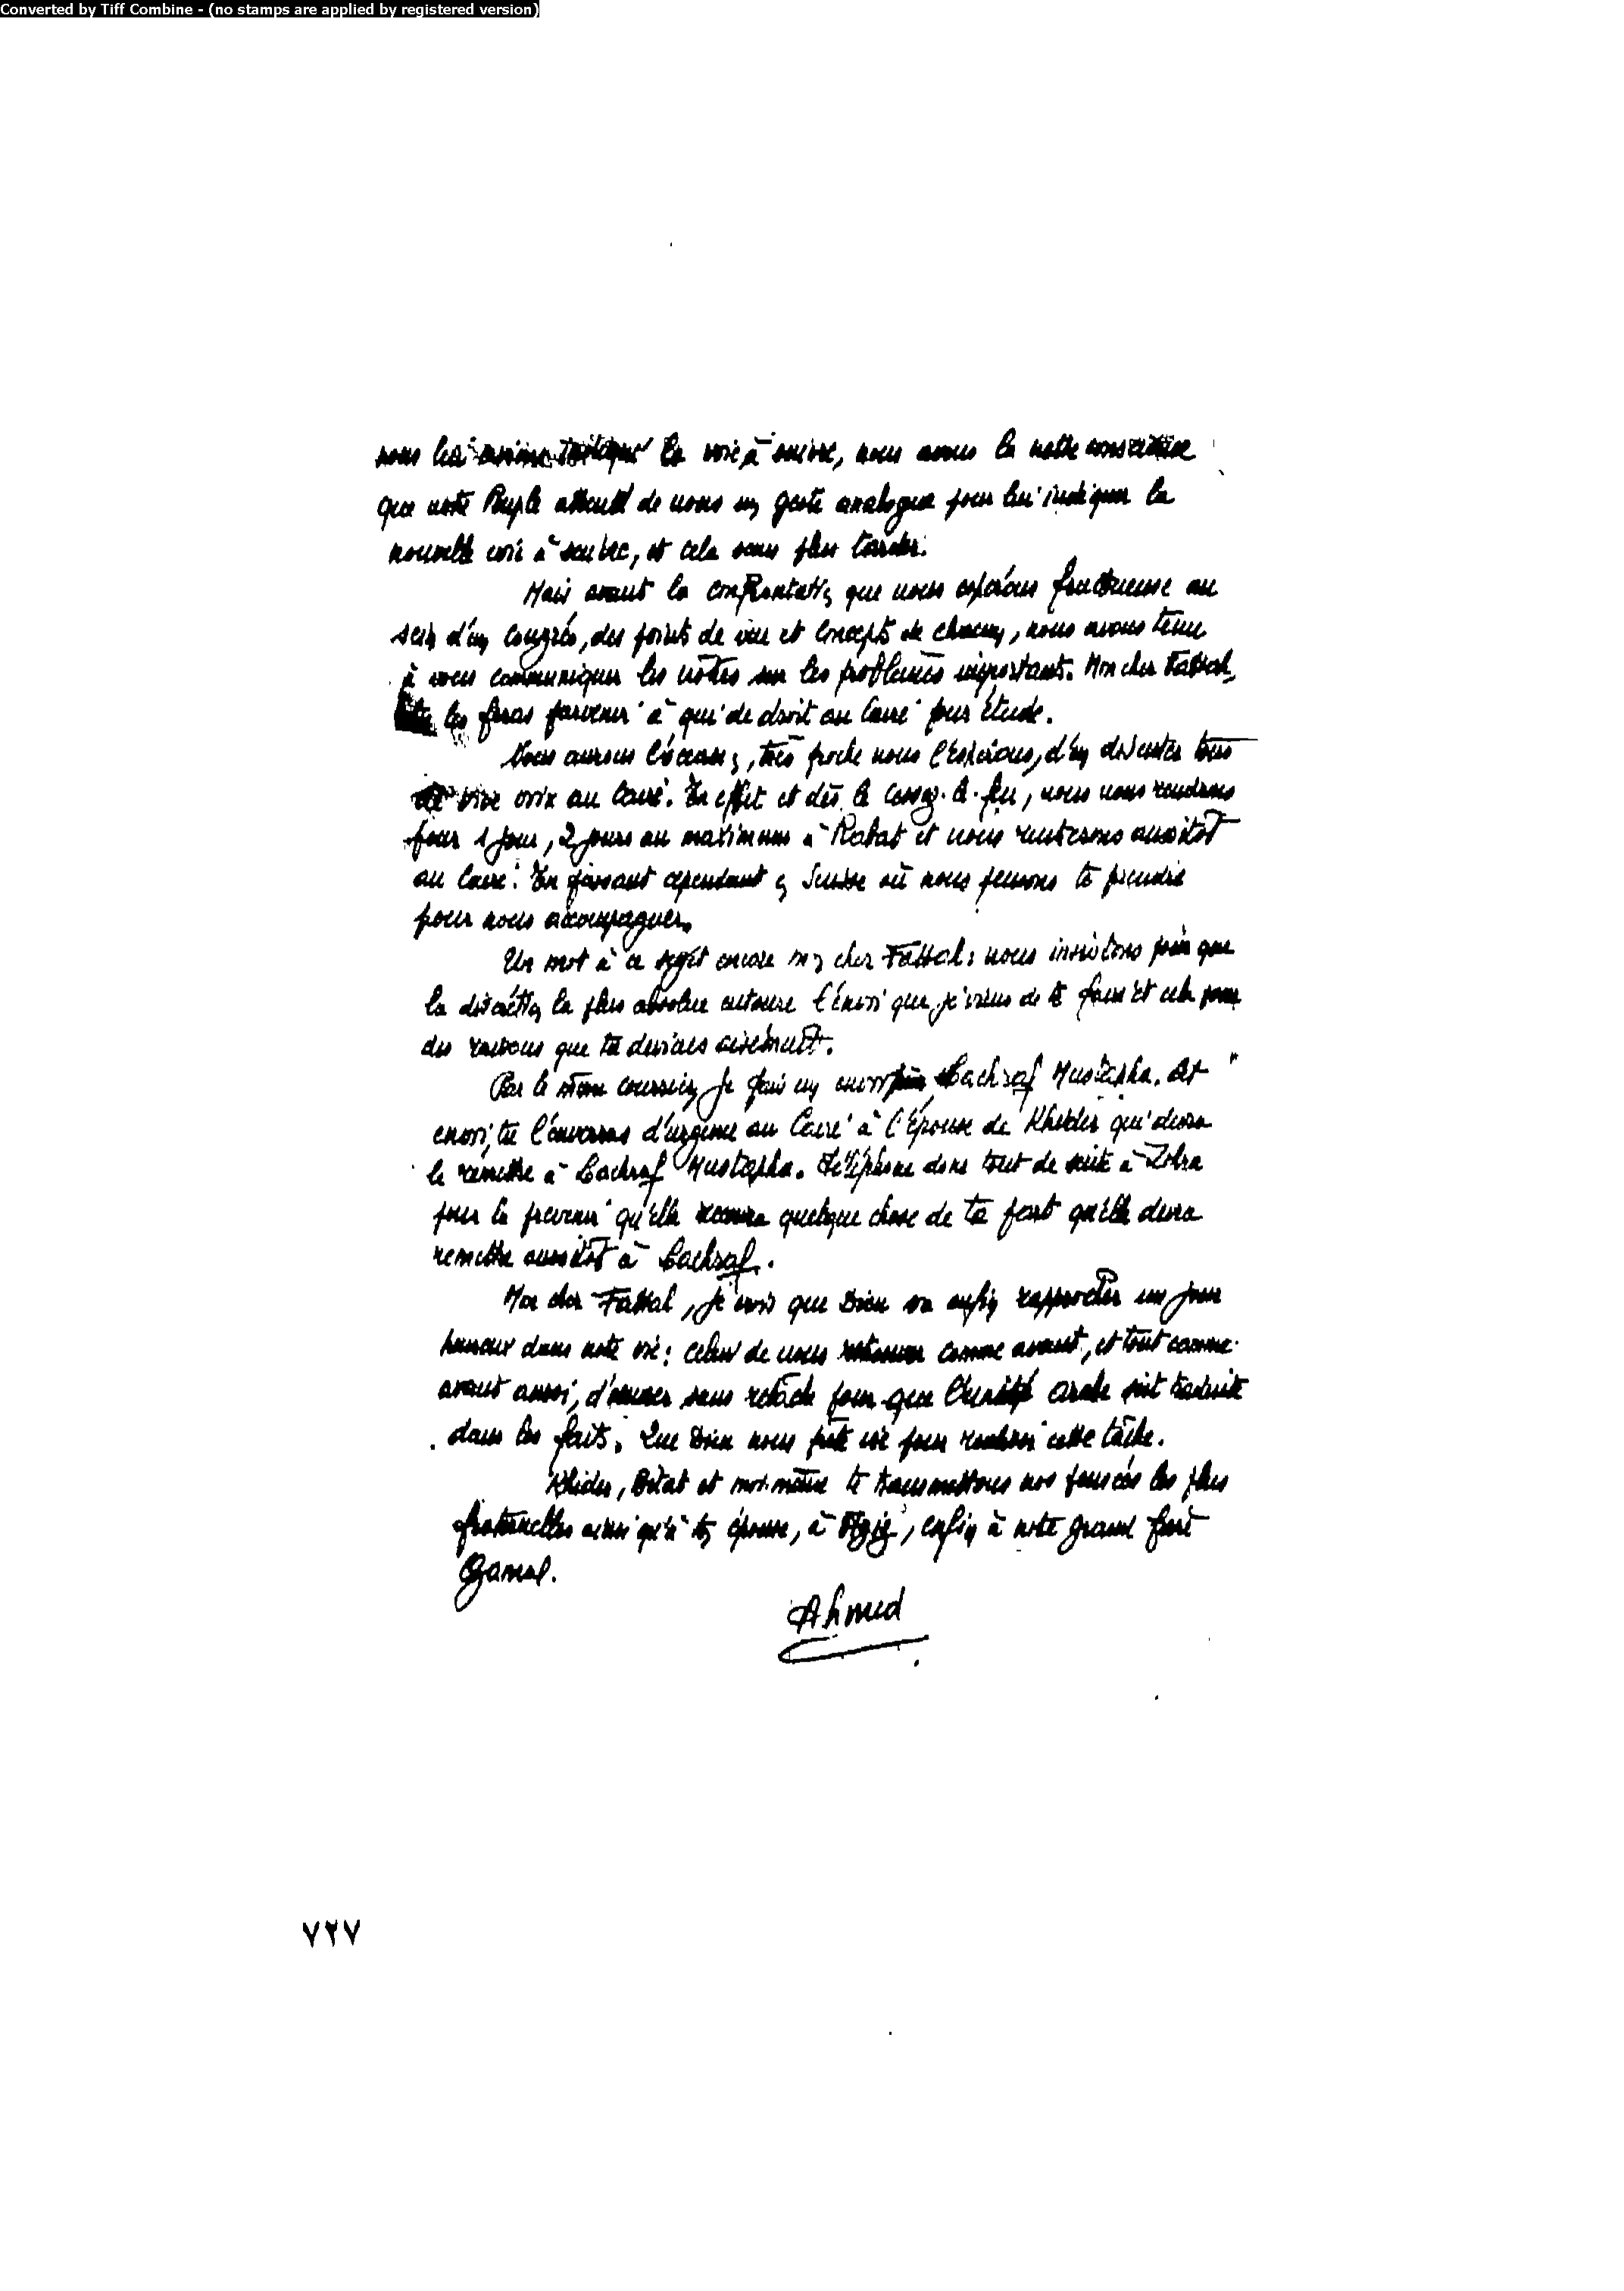 Converted by Tiff Combine - (no stamps are applied by registered version)
nous lui avions indiqué la voie à suivre, nous avons la nette conscience
que notre Peuple attend de nous un geste analogue pour lui indiquer la
nouvelle voie à suivre, et cela sans plus tarder.
Mais avant la confrontation que nous espérons fructueuse au
sein d'un Congrès, des points de vue et concepts de chacun, nous avons tenu
à vous communiquer les nôtres sur les problèmes importants. Mon cher Fathal,
les feras parvenir à qui de droit au Caire pour étude.
Nous aurons l'occasion, très proche nous l'espérons, d'en discuter tous
de vive voix au Caire. En effet et dès le cessez-le-feu, nous nous rendrons
pour 1 jour, 2 jours au maximum à Rabat et nous rentrerons aussitôt
au Caire. En passant cependant en Suisse où nous pourrons te prendre
pour nous accompagner.
Un mot à ce sujet encore mon cher Fathal: nous insistons pour que
la discrétion la plus absolue entoure l'envoi que je viens de te faire et cela pour
des raisons que tu devines aisément.
Par le même courrier je fais un envoi pour Lachraf Mustapha. Cet
envoi, tu l'enverras d'urgence au Caire à l'épouse de Khider qui devra
le remettre à Lachraf Mustapha. Téléphone donc tout de suite à Zohra
pour la prévenir qu'elle recevra quelque chose de ta part qu'elle devra
remettre aussitôt à Lachraf.
Mon cher Fathal, je crois que Dieu va enfin rapprocher un jour
heureux dans notre vie: celui de nous retrouver comme avant, et tout comme
avant aussi, d'œuvrer sans relâche pour que l'unité arabe soit traduite
dans les faits. Que Dieu nous prête vie pour réaliser cette tâche.
Khider, Bitat et moi-même te transmettons nos pensées les plus
fraternelles ainsi qu'à ton épouse, à, enfin à notre grand frère
Gamal.
Ahmed
٧٢٧